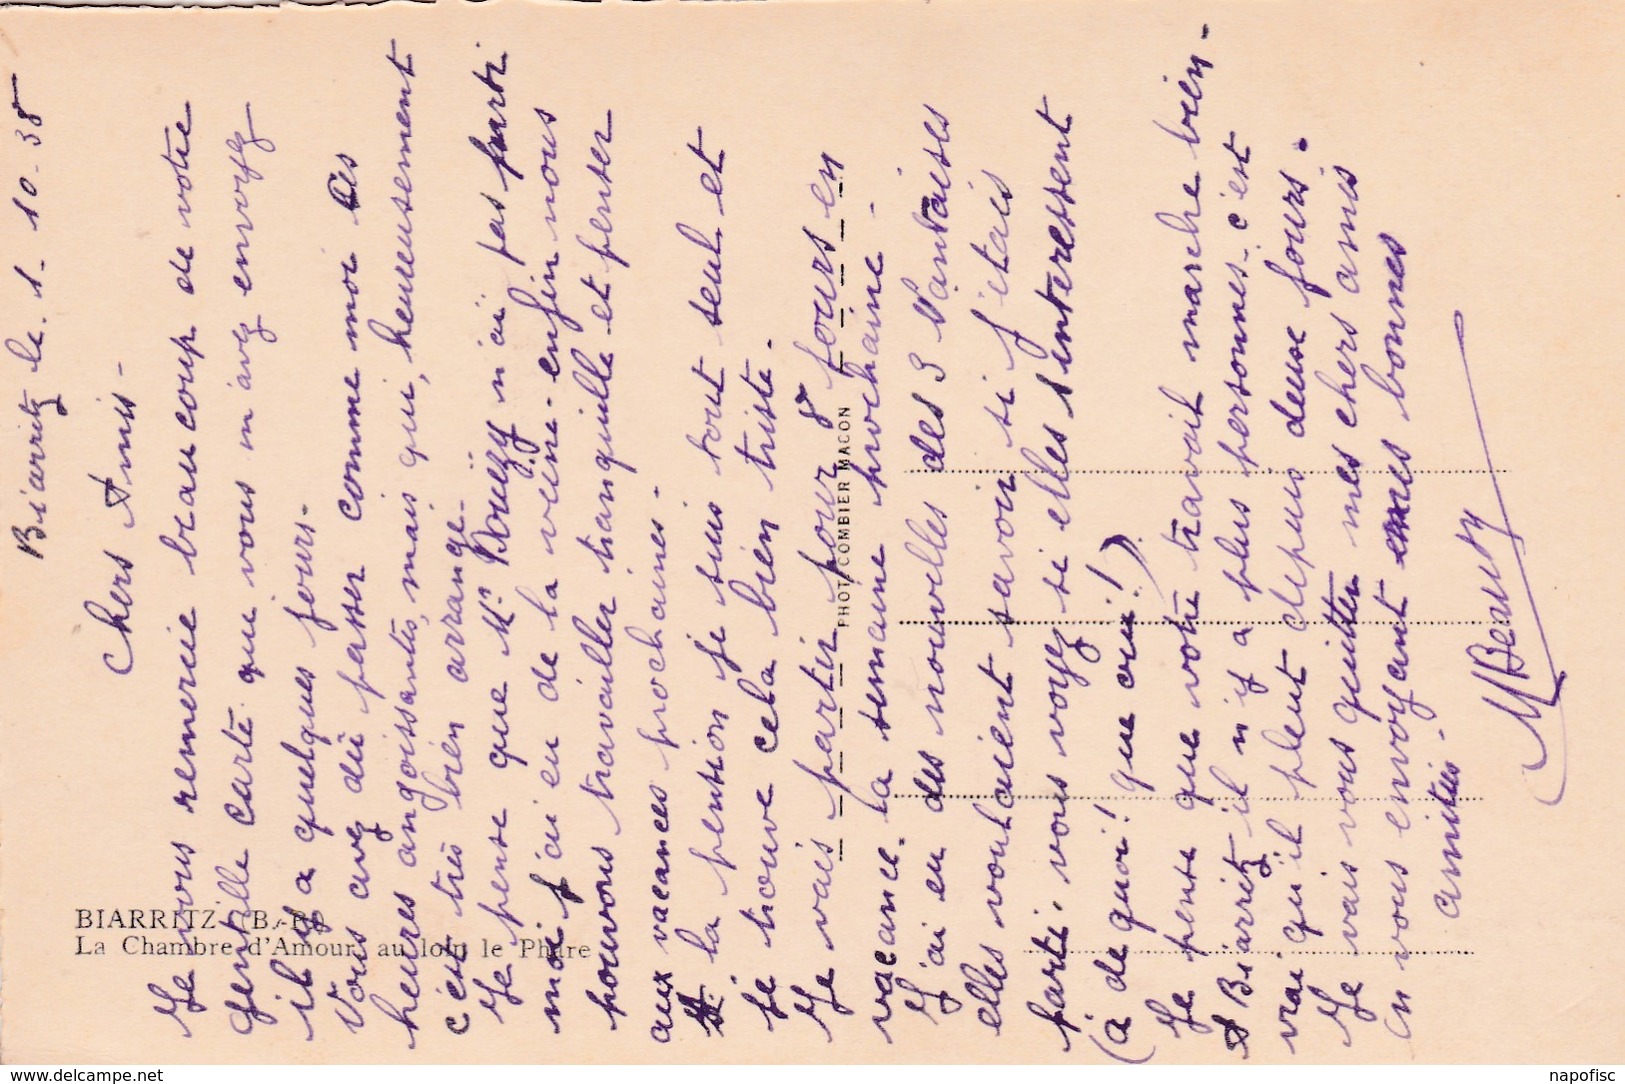 Biarritz le. 1. 10. 38
Chers Amis -
Je vous remercie beaucoup de votre
gentille carte que vous m'avez envoyez
il y a quelques jours -
Vous avez dû passer comme moi des
heures angoissantes, mais qui, heureusement
c'est très bien arrangé -
Je pense que Mr. n'ai pas parti
moi j'ai eu de la veine - enfin nous
pouvons travailler tranquille et penser
aux vacances prochaines -
A la pension je suis tout seul et
je trouve cela bien triste.
Je vais partir pour 8 jours en
vacance. la semaine prochaine.
J'ai eu des nouvelles des 3 Nantaises
elles voulaient savoir si j'étais
parti. vous voyez si elles s'interessent
(à de quoi! que oui!)
Je pense que votre travail marche bien -
A Biarritz il n'y a plus personnes - c'est
vrai qu'il pleut depuis deux jours.
Je vais vous quitter mes chers amis
en vous envoyant mes bonnes
amitiés -
MBeauty
BIARRITZ (B.-P.)
La Chambre d'Amour, au loin le Phare
PHOT. COMBIER MACON
www.delcampe.net
napofisc